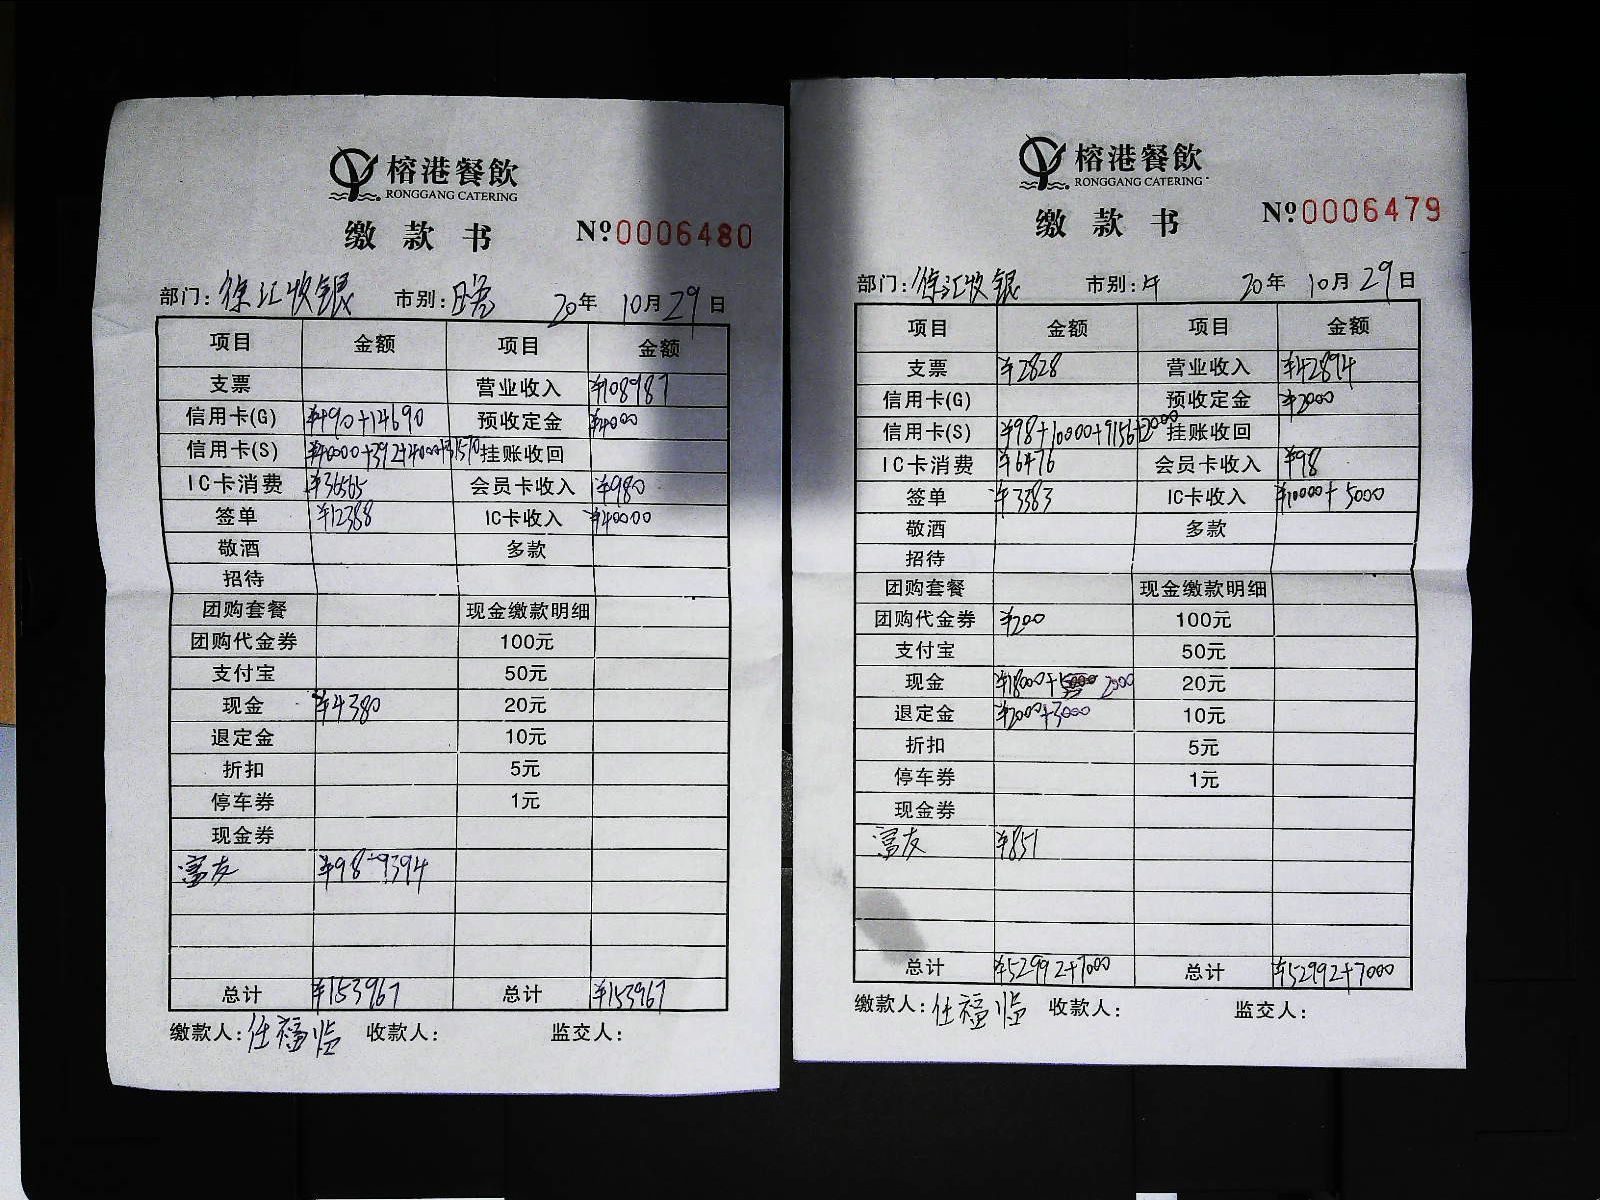 榕港餐飲
RONGGANG CATERING
缴款书
Nº0006480
部门:徐汇收银 市别:晚 20年 10月29日
项目 金额 项目 金额
支票 营业收入 ¥108987
信用卡(G) ¥490+14690 预收定金 ¥4000
信用卡(S) ¥40000+392+4000+31570 挂账收回
IC卡消费 ¥36565 会员卡收入 ¥980
签单 ¥12388 IC卡收入 ¥40000
敬酒 多款
招待
团购套餐 现金缴款明细
团购代金券 100元
支付宝 50元
现金 ¥4380 20元
退定金 10元
折扣 5元
停车券 1元
现金券
富友 ¥98+9394
总计 ¥153967 总计 ¥153967
缴款人:任福临 收款人: 监交人:
榕港餐飲
RONGGANG CATERING
缴款书
Nº0006479
部门:徐汇收银 市别:午 20年 10月29日
项目 金额 项目 金额
支票 ¥2828 营业收入 ¥42894
信用卡(G) 预收定金 ¥2000
信用卡(S) ¥98+10000+9156+2000 挂账收回
IC卡消费 ¥6476 会员卡收入 ¥98
签单 ¥3383 IC卡收入 ¥10000+5000
敬酒 多款
招待
团购套餐 现金缴款明细
团购代金券 ¥200 100元
支付宝 50元
现金 ¥18000+ 2000 20元
退定金 ¥2000+3000 10元
折扣 5元
停车券 1元
现金券
富友 ¥851
总计 ¥52992+7000 总计 ¥52992+7000
缴款人:任福临 收款人: 监交人: